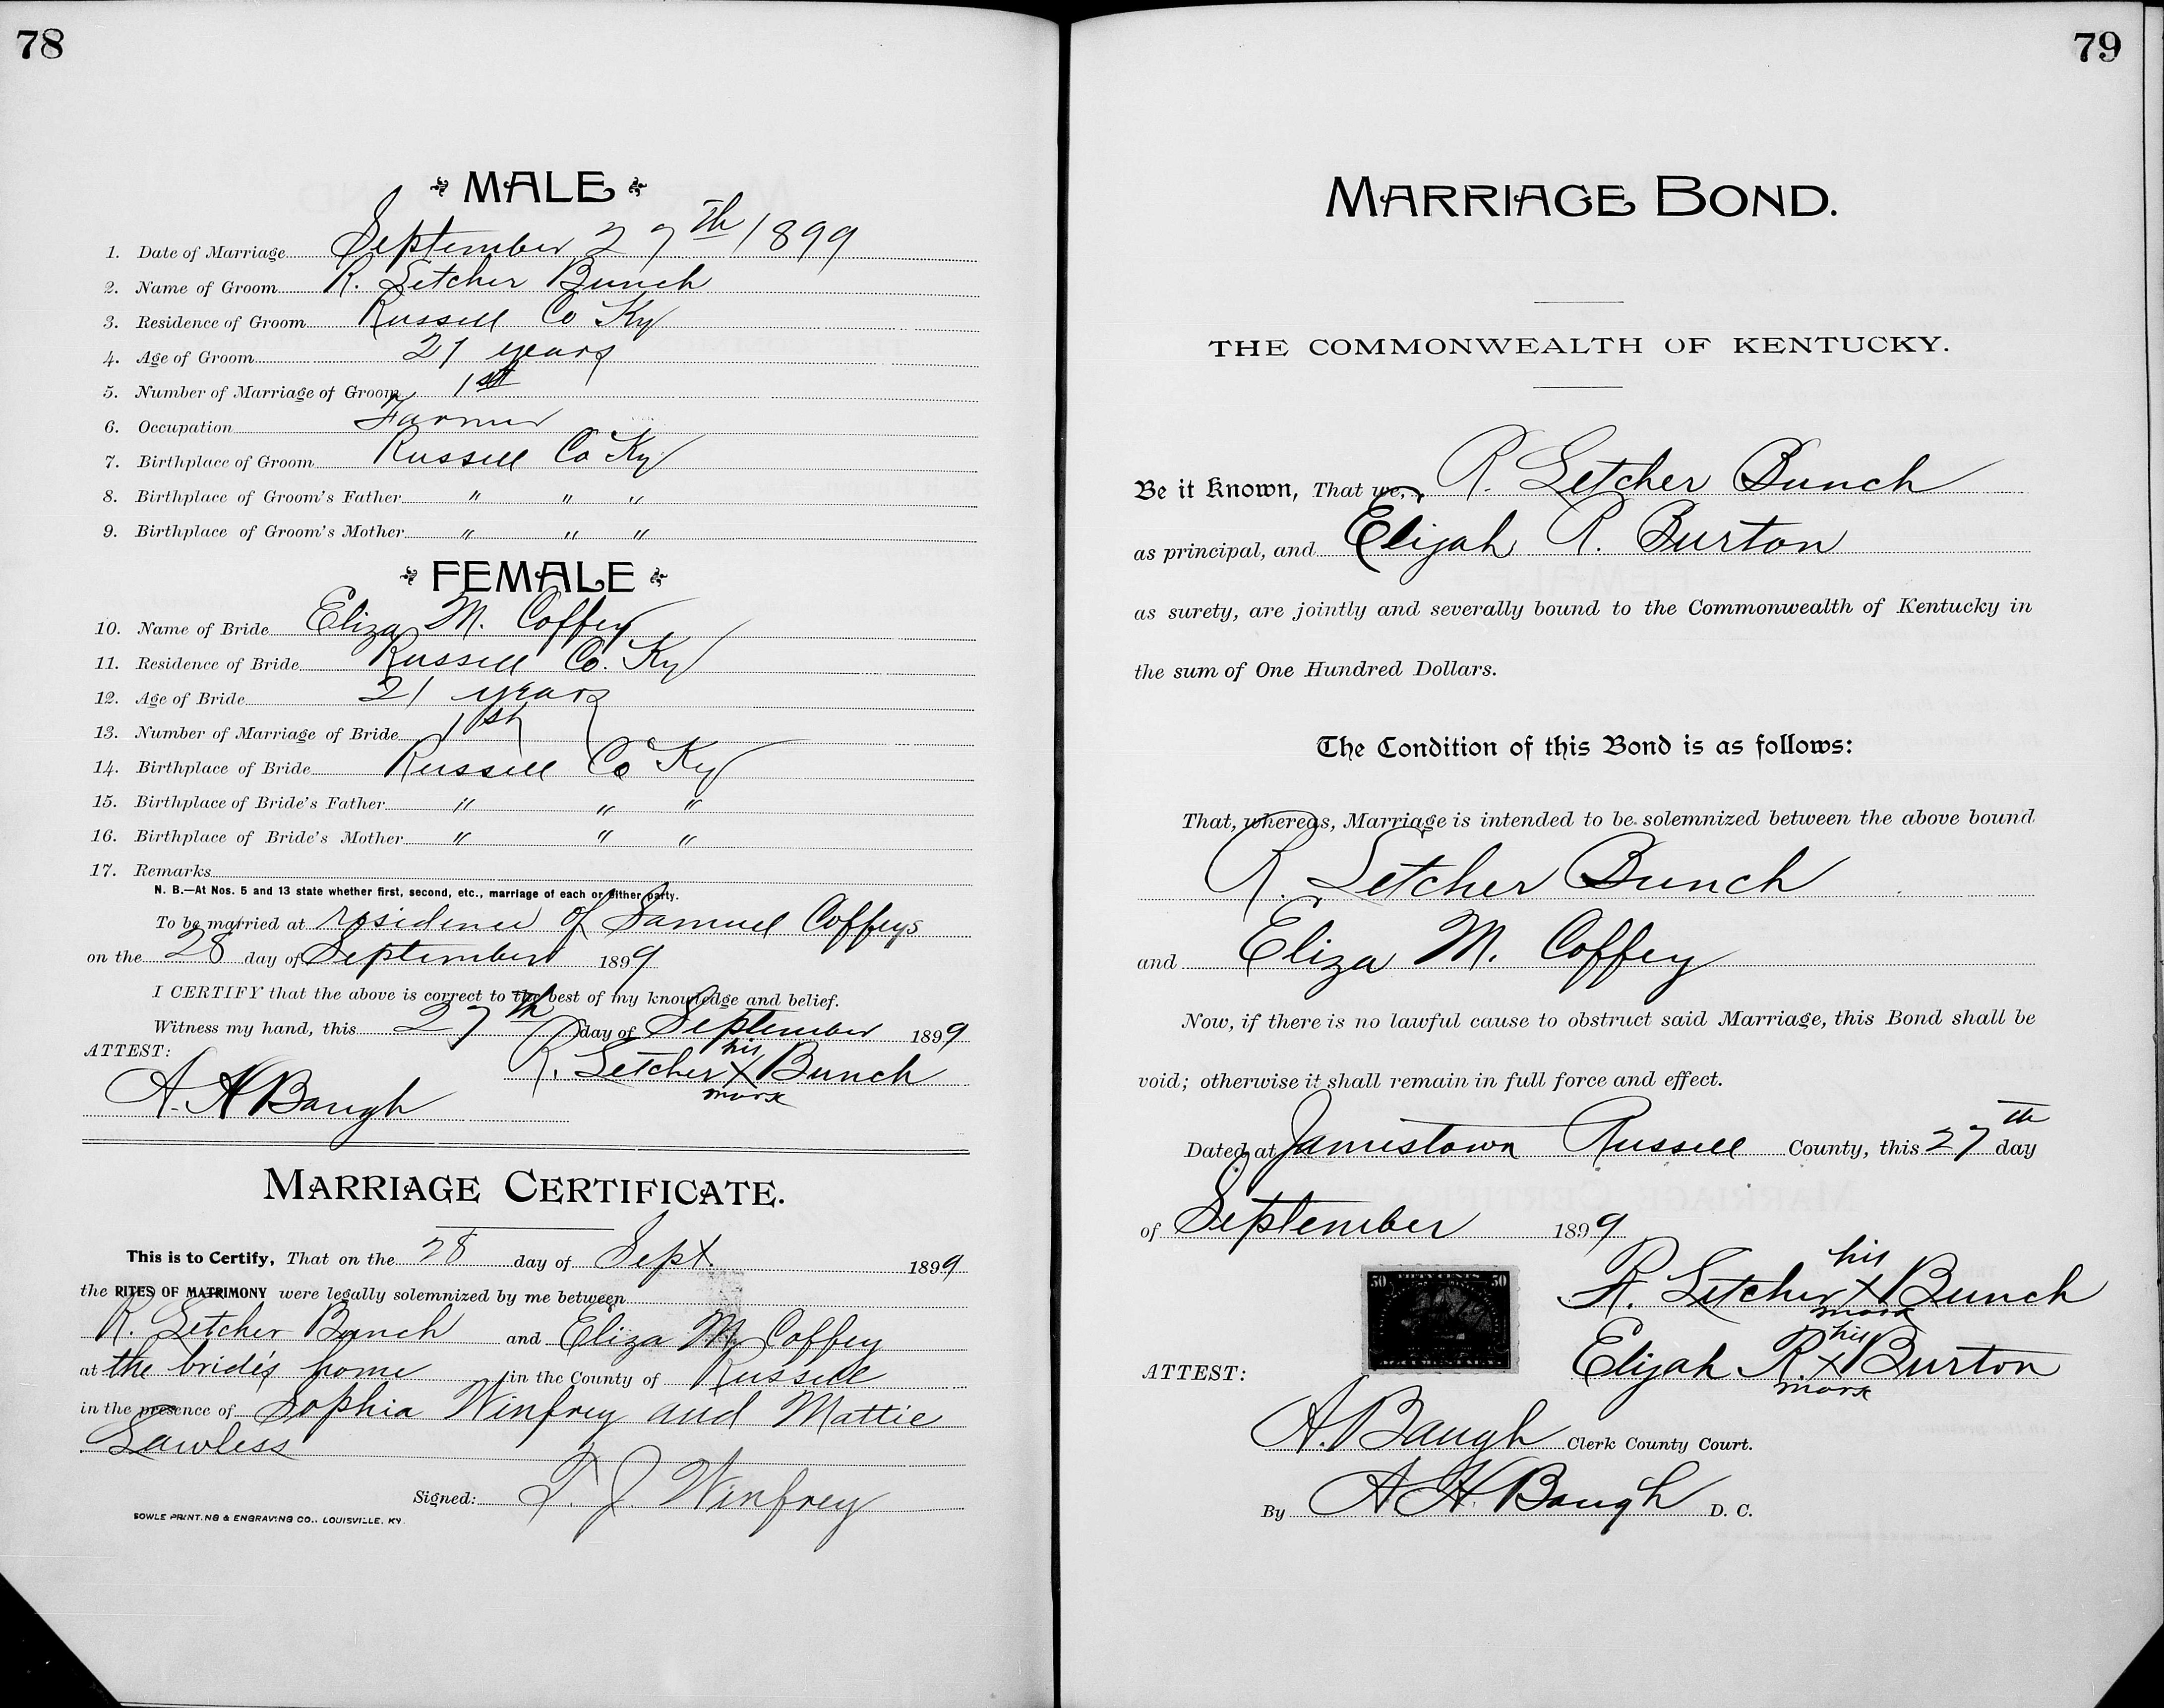 78
MALE
1. Date of Marriage September 27th 1899
2. Name of Groom R. Letcher Bunch
3. Residence of Groom Russell Co Ky
4. Age of Groom 21 years
5. Number of Marriage of Groom 1st
6. Occupation Farmer
7. Birthplace of Groom Russell Co Ky
8. Birthplace of Groom's Father " " "
9. Birthplace of Groom's Mother " " "
FEMALE
10. Name of Bride Eliza M. Coffey
11. Residence of Bride Russell Co. Ky
12. Age of Bride 21 years
13. Number of Marriage of Bride 1st
14. Birthplace of Bride Russell Co Ky
15. Birthplace of Bride's Father " " "
16. Birthplace of Bride's Mother " " "
17. Remarks
N. B.—At Nos. 5 and 13 state whether first, second, etc., marriage of each or either party.
To be married at residence of Samuel Coffeys
on the 28 day of September 1899
I CERTIFY that the above is correct to the best of my knowledge and belief.
Witness my hand, this 27th day of September 1899
ATTEST:
his
R. Letcher X Bunch
mark
A. H Baugh
MARRIAGE CERTIFICATE.
This is to Certify, That on the 28 day of Sept. 1899
the RITES OF MATRIMONY were legally solemnized by me between
R. Letcher Bunch and Eliza M. Coffey
at the bride's home in the County of Russell
in the presence of Sophia Winfrey and Mattie
Lawless
Signed: T. J. Winfrey
BOWLE PRINTING & ENGRAVING CO., LOUISVILLE, KY.
79
MARRIAGE BOND.
THE COMMONWEALTH OF KENTUCKY.
Be it Known, That we, R. Letcher Bunch
as principal, and Elijah R. Burton
as surety, are jointly and severally bound to the Commonwealth of Kentucky in
the sum of One Hundred Dollars.
The Condition of this Bond is as follows:
That, whereas, Marriage is intended to be solemnized between the above bound
R. Letcher Bunch
and Eliza M. Coffey
Now, if there is no lawful cause to obstruct said Marriage, this Bond shall be
void; otherwise it shall remain in full force and effect.
Dated at Jamestown Russell County, this 27th day
of September 1899
50 FIFTY CENTS 50
his
R. Letcher X Bunch
mark
his
Elijah R. X Burton
mark
ATTEST:
A. Baugh Clerk County Court.
By A. H. Baugh D. C.